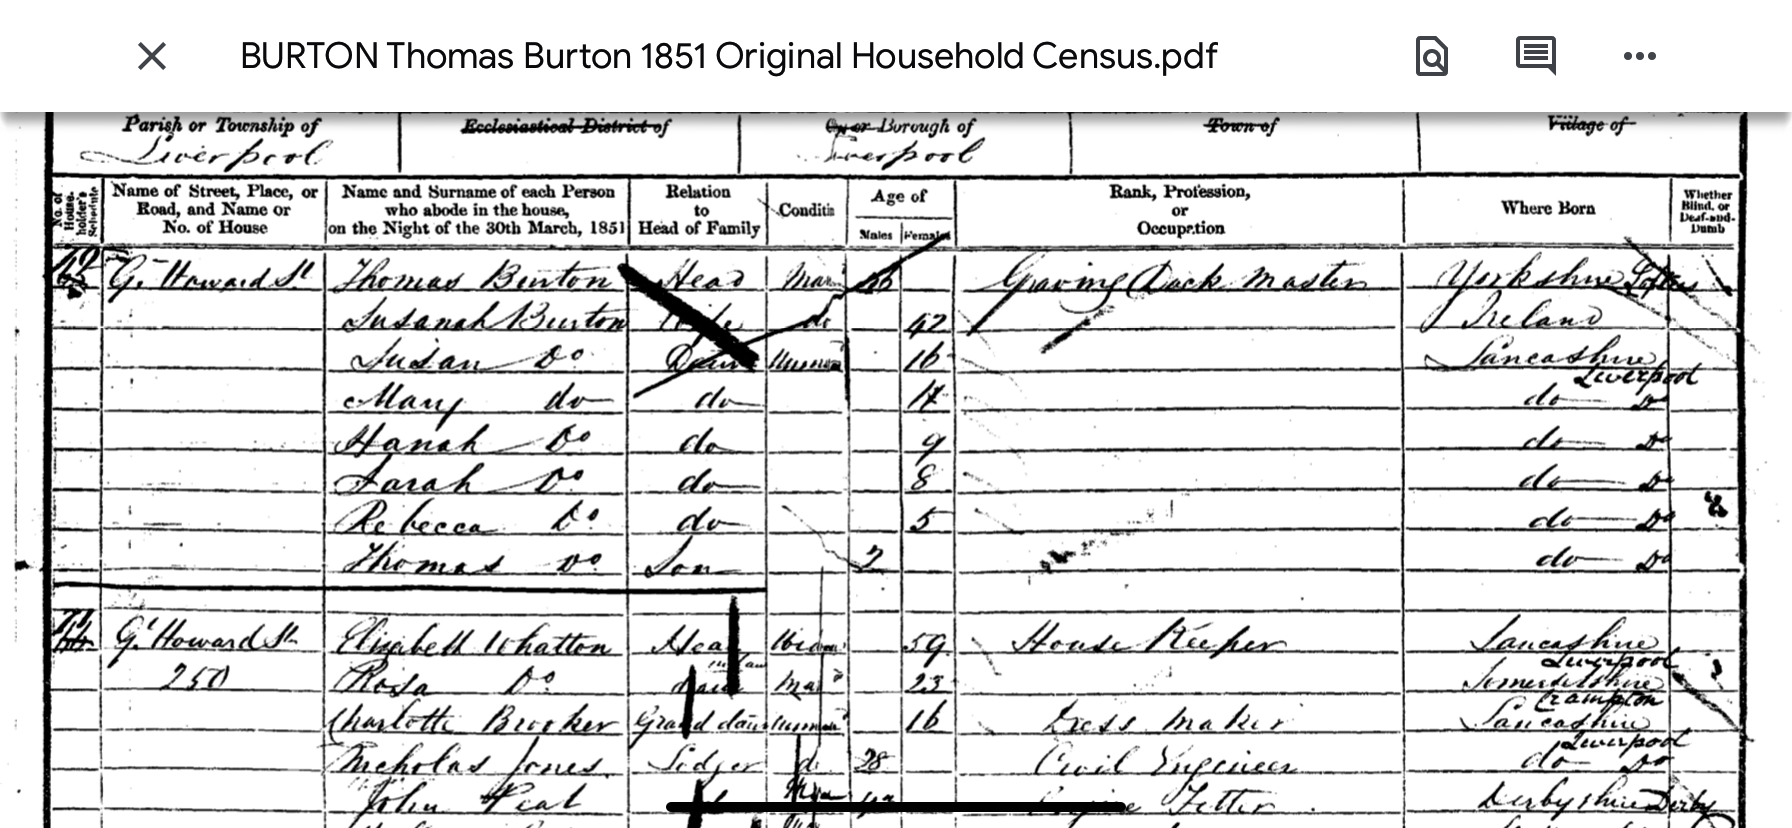 BURTON Thomas Burton 1851 Original Household Census.pdf
Parish or Township of Ecclesiastical District of City or Borough of Town of Village of
Liverpool Liverpool
No. of House-holder's Schedule Name of Street, Place, or Road, and Name or No. of House Name and Surname of each Person who abode in the house, on the Night of the 30th March, 1851 Relation to Head of Family Condition Age of Males Females Rank, Profession, or Occupation Where Born Whether Blind, or Deaf-and-Dumb
Gt Howard St Thomas Burton Head Mar Graving Dock Master Yorkshire
Susanah Burton Wife do 47 Ireland
Susan Do Daur Unmar 16 Lancashire Liverpool
Mary do do do Do
Hanah Do do 9 do Do
Sarah Do do 8 do Do
Rebecca Do do 5 do Do
Thomas Do Son 2 do Do
Gt Howard St Elizabeth Whatton Head Widow 59 House Keeper Lancashire Liverpool
250 Rosa Do daur in law Mar 23 Somersetshire
Charlotte Brooker Grand daur Unmar 16 Dress Maker Lancashire Liverpool
Nicholas Jones Lodger 28 Civil Engineer do Do
John Peat Fitter Derbyshire Derby